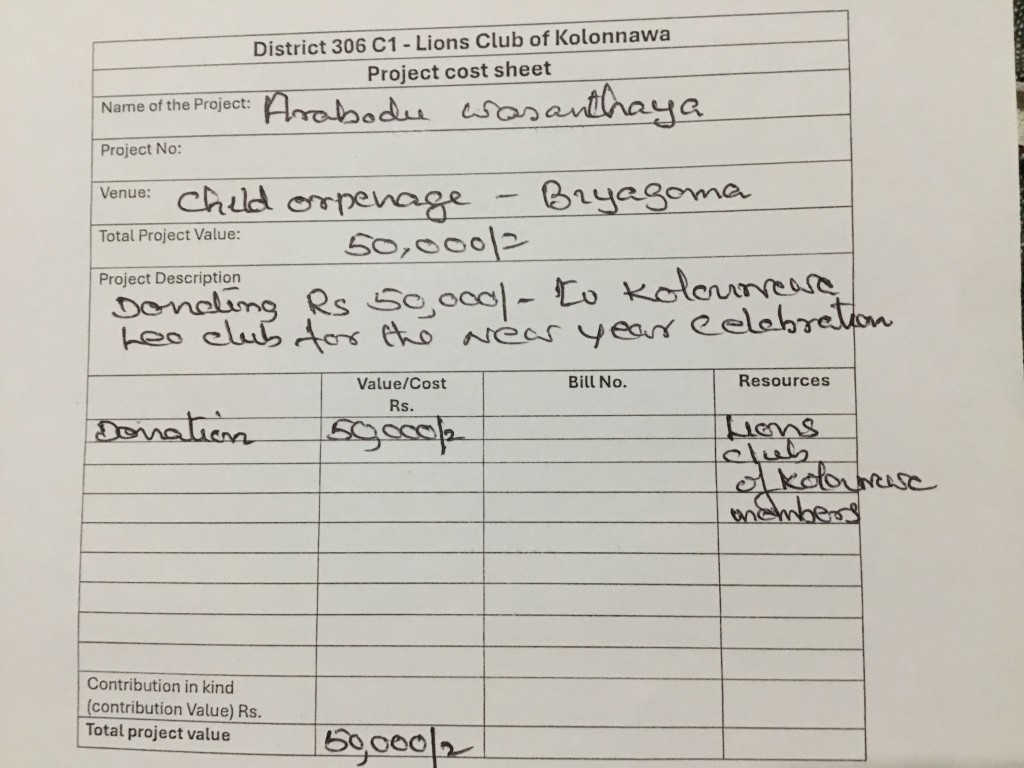 District 306 C1 - Lions Club of Kolonnawa
Project cost sheet
Name of the Project: Arabodu wasanthaya
Project No:
Venue: Child orpenage - Biyagoma
Total Project Value: 50,000/=
Project Description
Donating Rs 50,000/- to Kolonnawa
Leo club for the new year celebration
Value/Cost Rs. Bill No. Resources
Donation 50,000/= Lions
club
of Kolonnawa
members
Contribution in kind
(contribution Value) Rs.
Total project value 50,000/=